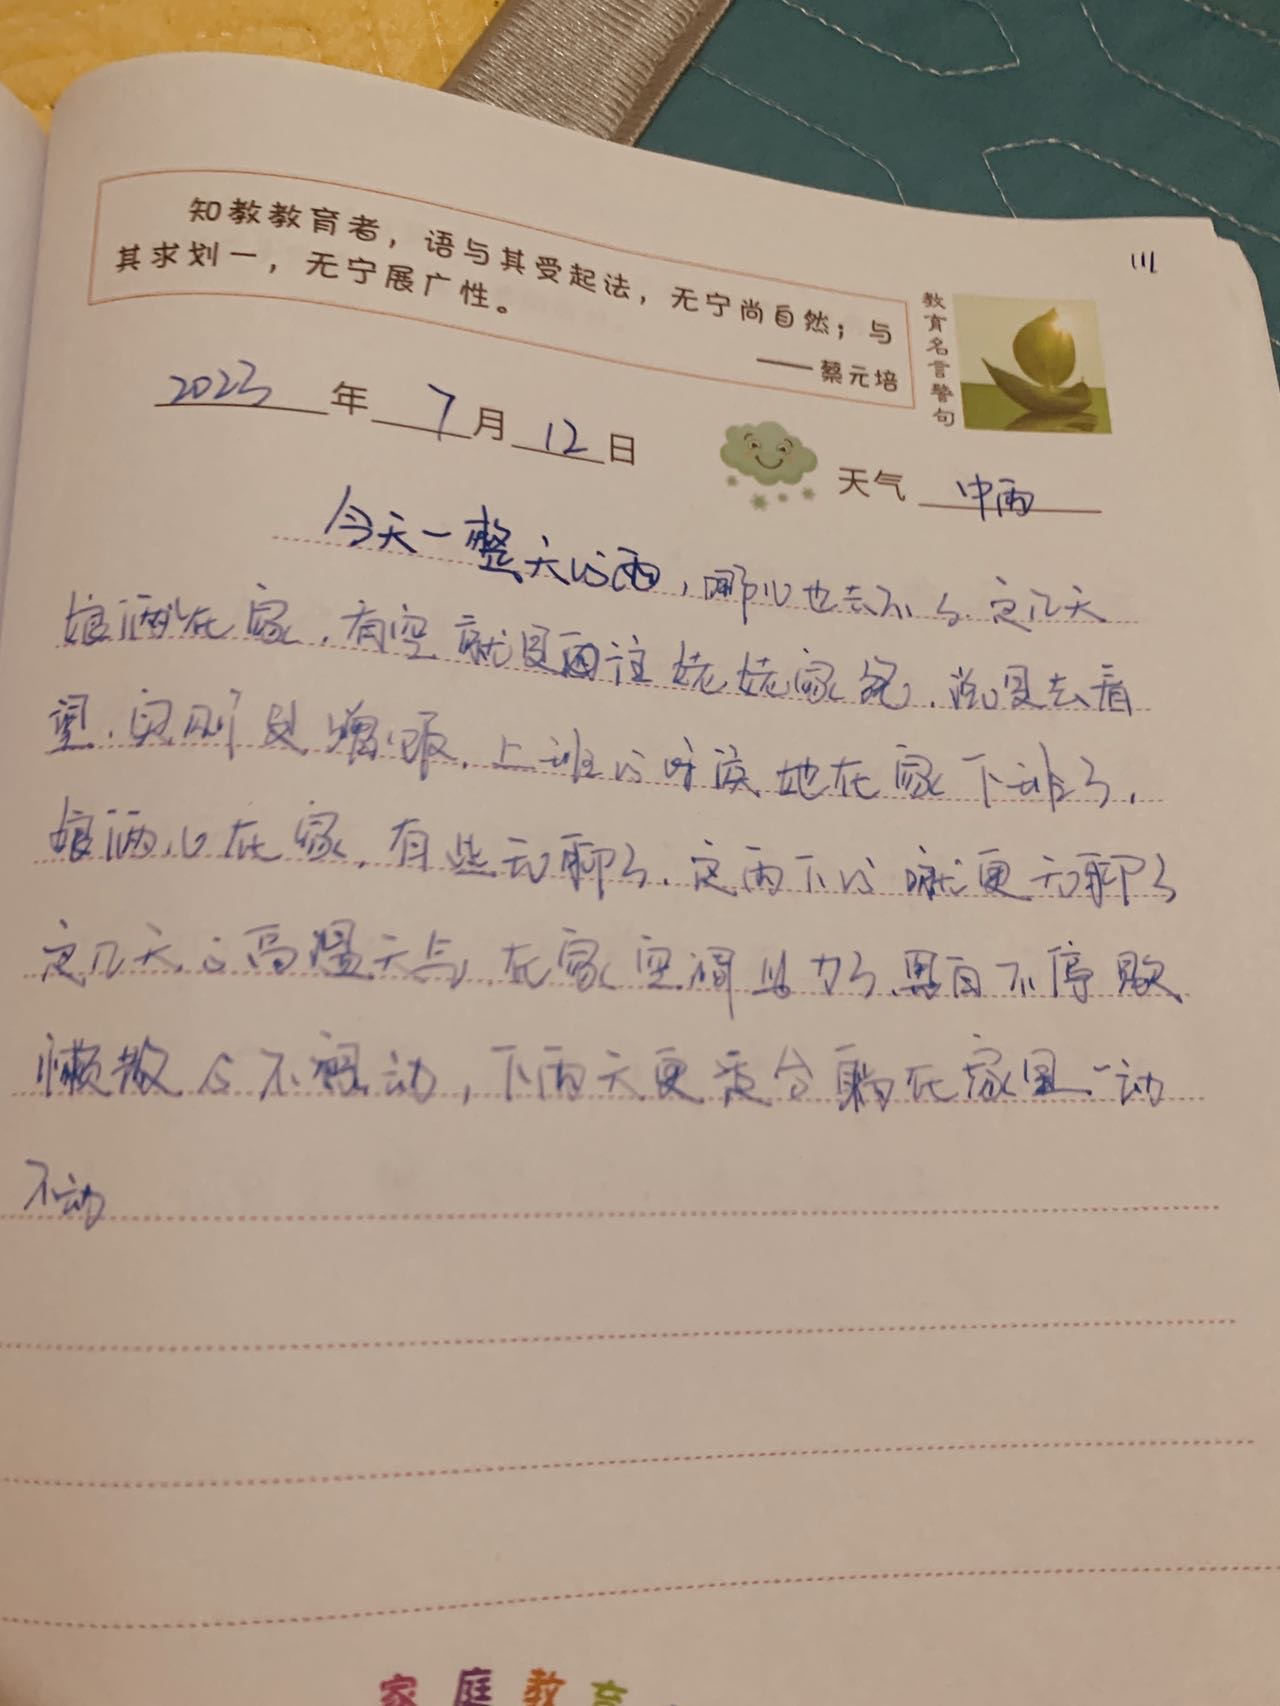 111
知教教育者，语与其受起法，无宁尚自然；与
其求划一，无宁展广性。
——蔡元培
教育名言警句
2023年7月12日
天气 中雨
今天一整天的雨，哪儿也去不了，这几天
娘俩在家，有空就是面注姥姥家，说是去看
望，实则是蹭饭，上班的时候她在家下班了，
娘俩儿在家，有些无聊了，这雨下的就更无聊了
这几天的高温天气，在家空调助力了，男白不停歇
懒散的不想动，下雨天更适合躺在家里一动
不动
家庭教育